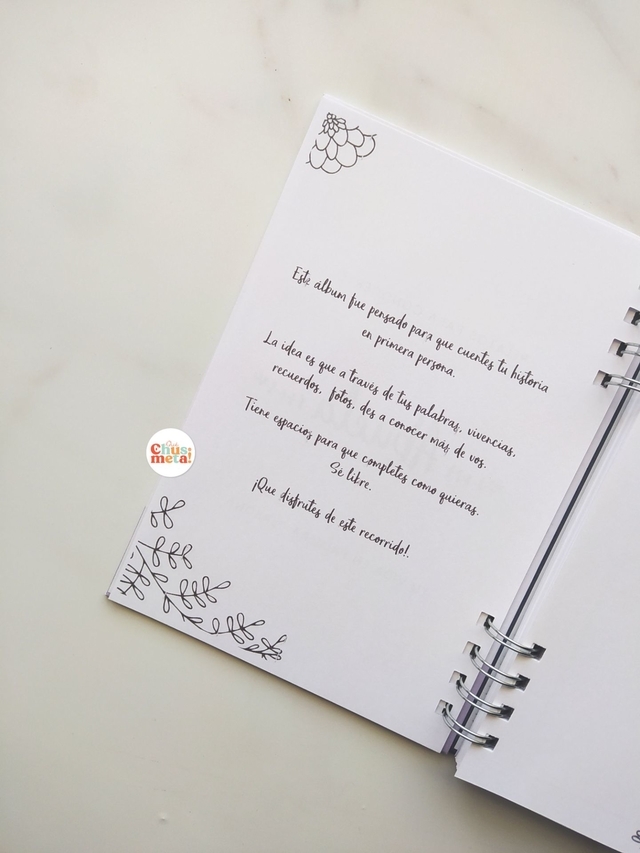 Este álbum fue pensado para que cuentes tu historia
en primera persona.
La idea es que a través de tus palabras, vivencias,
recuerdos, fotos, des a conocer más de vos.
Tiene espacios para que completes como quieras.
Sé libre.
¡Que disfrutes de este recorrido!.
¡Qué
Chus
meta!